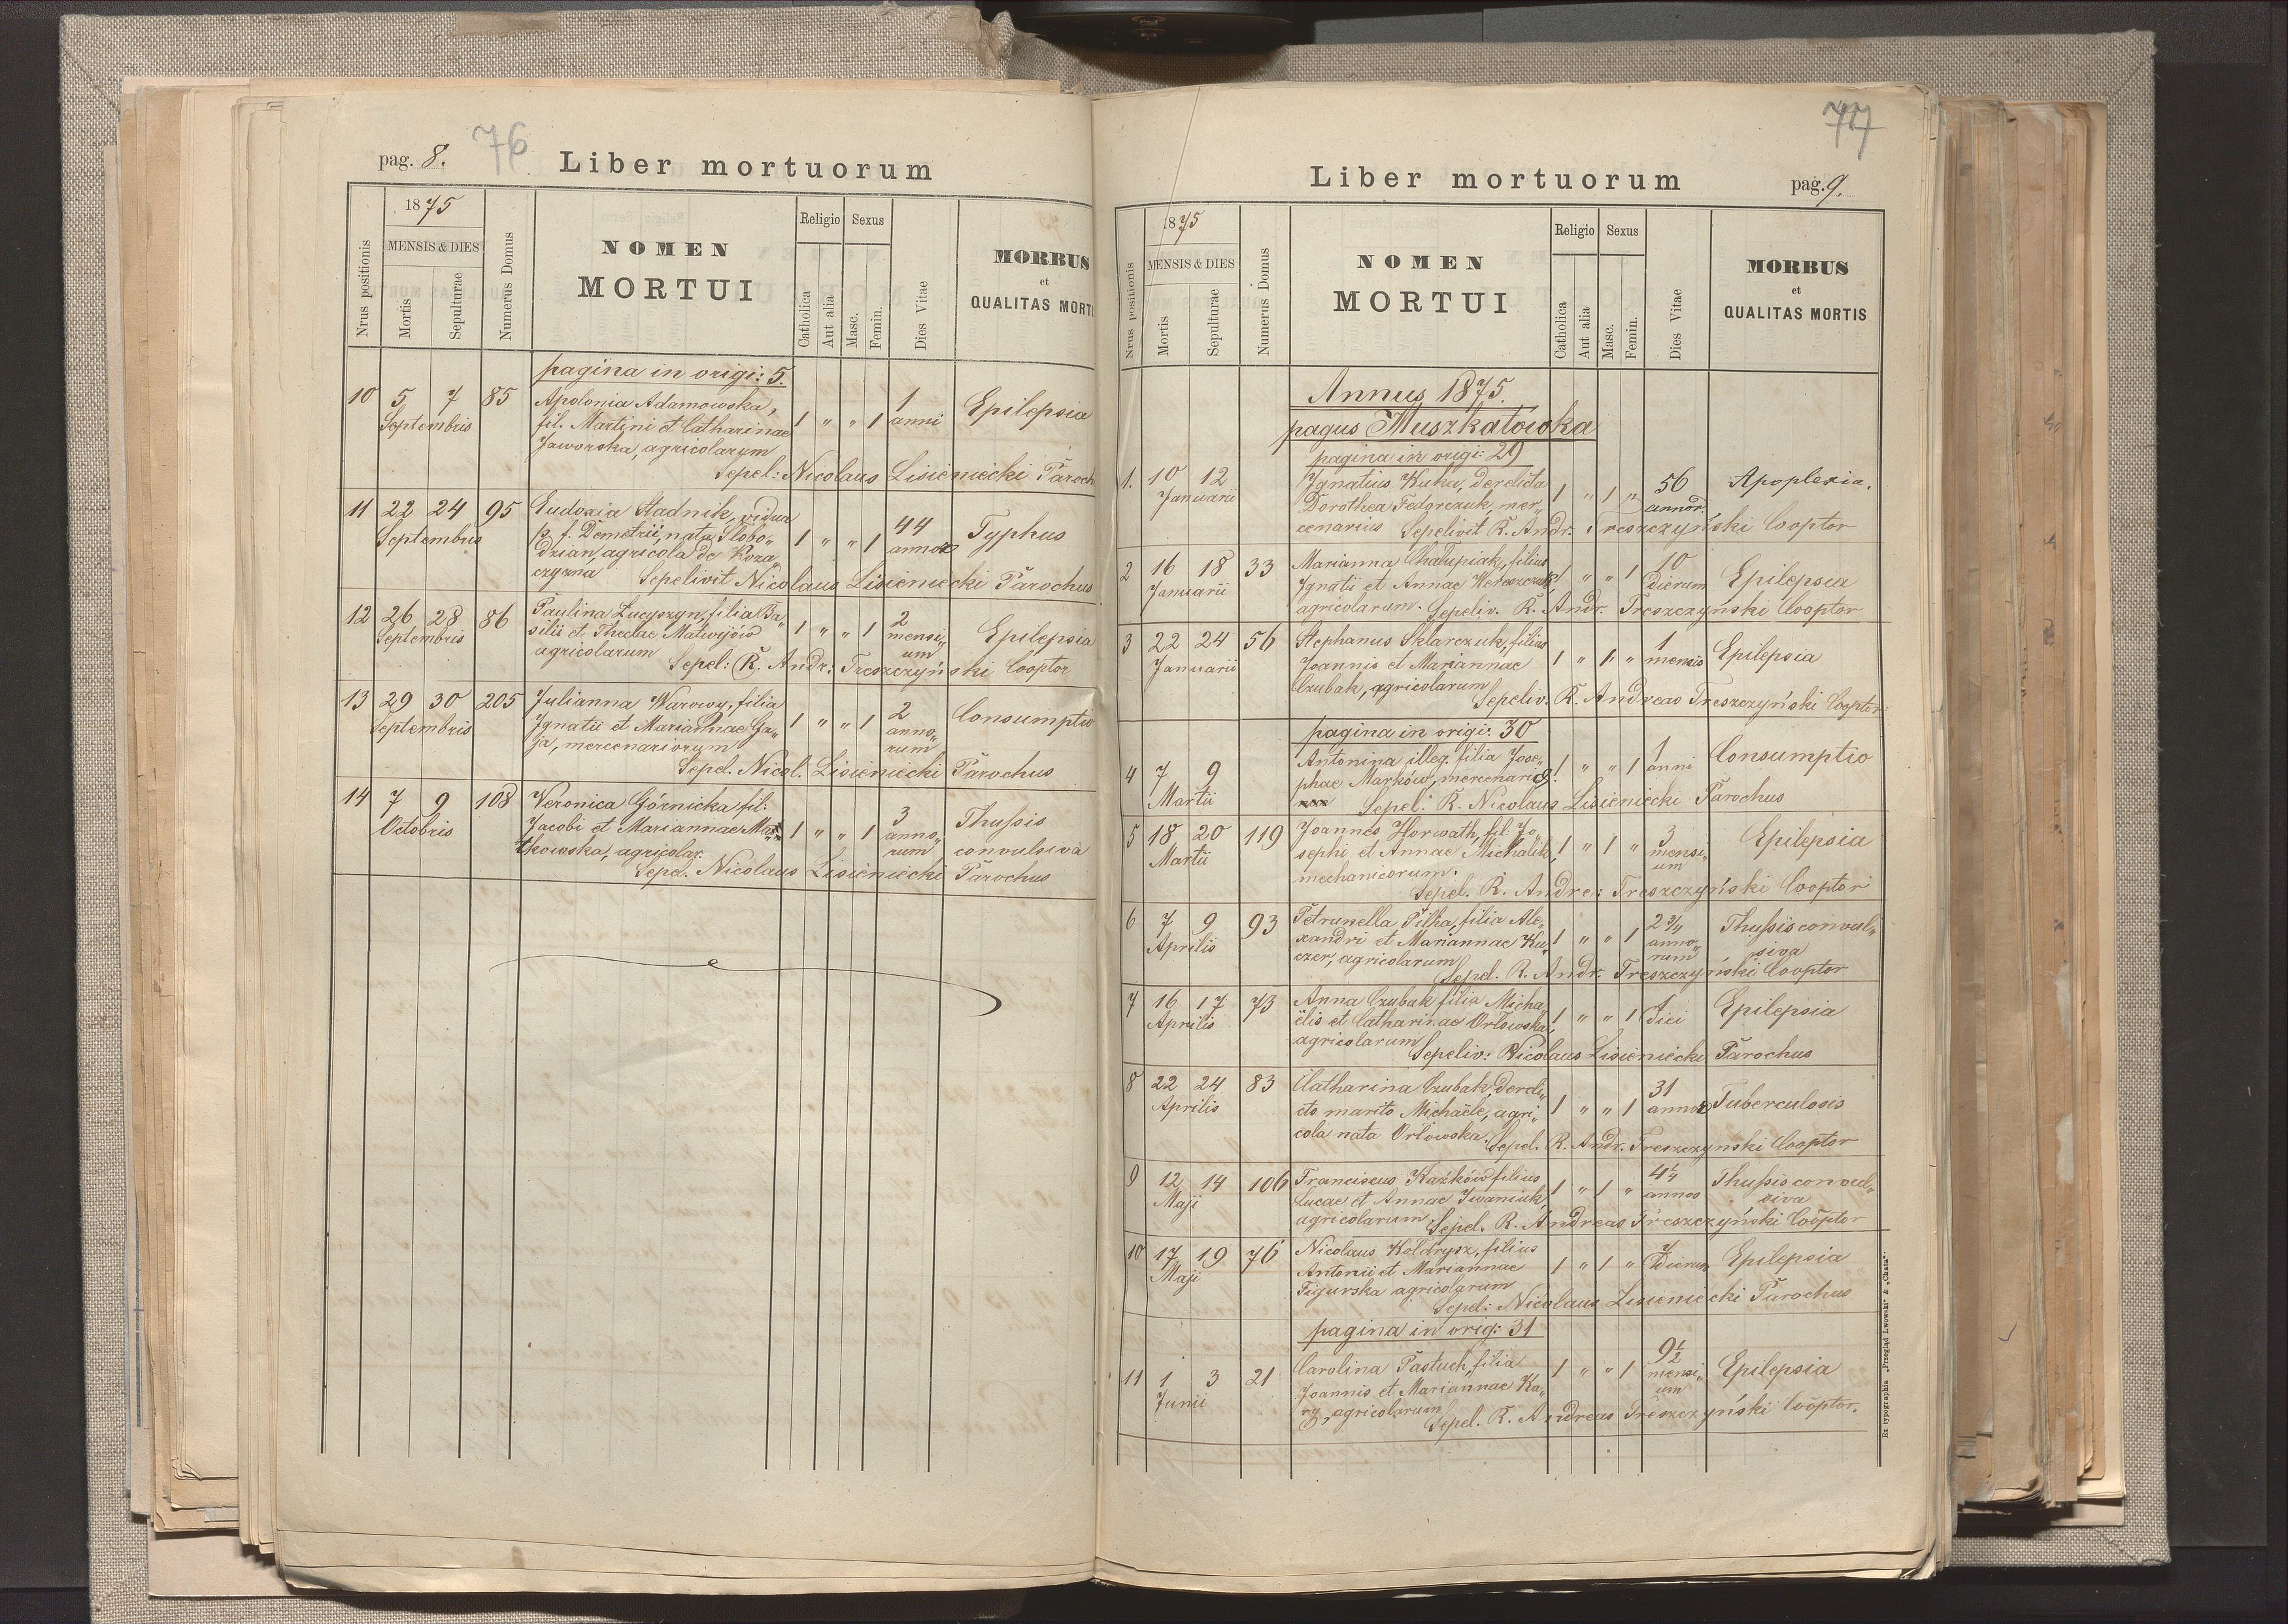 pag. 8. 76
Liber mortuorum
1875
MENSIS & DIES
Nrus positionis
Mortis
Sepulturae
Numerus Domus
NOMEN
MORTUI
Religio
Sexus
Catholica
Aut alia
Masc.
Femin.
Dies Vitae
MORBUS
et
QUALITAS MORTI
pagina in origi: 5.
10 5 7 85 Apolonia Adamowska, 1 " " 1 1 Epilepsia
Septembris fil. Martini et Catharinae anni
Jaworska, agricolarum
Sepel: Nicolaus Lisieniecki Paroch
11 22 24 95 Eudoxia Stadnik, vidua 44 Typhus
Septembris p. f. Demetrii, nata Slobo„ 1 " " 1 annor
dzian agricola de Koza„
czyzna Sepelivit Nicolaus Lisieniecki Parochus
12 26 28 86 Paulina Lucyszyn, filia Ba„ 1 " " 1 2 Epilepsia
Septembris silii et Theclae Matwijów mensi„
agricolarum um
Sepel: R. Andr: Treszczyński Cooptor
13 29 30 205 Julianna Warowy, filia 1 " " 1 2 Consumptio
Septembris Ignatii et Mariannae Ga„ anno„
ja, mercenariorum rum
Sepel. Nicol. Lisieniecki Parochus
14 7 9 108 Veronica Górnicka fil: 3 Thussis
Octobris Jacobi et Mariannae Mar„ 1 " " 1 anno„ convulsiva
tkowska, agricolar. rum
Sepel. Nicolaus Lisieniecki Parochus
77
Liber mortuorum
pag. 9.
1875
MENSIS & DIES
Nrus positionis
Mortis
Sepulturae
Numerus Domus
NOMEN
MORTUI
Religio
Sexus
Catholica
Aut alia
Masc.
Femin.
Dies Vitae
MORBUS
et
QUALITAS MORTIS
Annus 1875.
pagus Muszkatówka
pagina in origi: 29
1. 10 12 Ignatius Kuha, derelicta 1 " 1 " 56 Apoplexia.
Januarii Dorothea Fedorczuk, mer„ annor.
cenarius Sepelivit R. Andr. Treszczyński Cooptor
2 16 18 33 Marianna Chałupiak, filius 1 " " 1 10 Epilepsia
Januarii Ignatii et Annae dierum
agricolarum. Sepeliv. R. Andr. Treszczyński Cooptor
3 22 24 56 Stephanus Sklarczuk, filius 1 " 1 " 1 Epilepsia
Januarii Joannis et Mariannae mensis
Czubak, agricolarum
Sepeliv. R. Andreas Treszczyński Cooptor
pagina in origi: 30
4 7 9 Antonina illeg. filia Jose„ 1 " " 1 1 Consumptio
Martii phae Marków, mercenariae. anni
Sepel. R. Nicolaus Lisieniecki Parochus
5 18 20 119 Joannes Horwath, fil: Jo„ 1 " 1 " 3 Epilepsia
Martii sephi et Annae Michalik, mensi„
mechanicorum. um
Sepel. R. Andre: Treszczyński Cooptor
6 7 9 93 Petrunella Pilha, filia Ale„ 1 " " 1 2 3/4 Thussis convul„
Aprilis xandri et Mariannae Ku„ anno„ siva
czer, agricolarum rum
Sepel. R. Andr. Treszczyński Cooptor
7 16 17 73 Anna Czubak filia Micha 1 " " 1 1 Epilepsia
Aprilis ëlis et Catharinae Orłowska, diei
agricolarum
Sepeliv: Nicolaus Lisieniecki Parochus
8 22 24 83 Catharina Czubak, dereli„ 31 Tuberculosis
Aprilis cto marito Michaële, agri„ 1 " " 1 annor
cola nata Orłowska. Sepel. R. Andr. Treszczynski Cooptor
9 12 14 106 Franciscus Kaźków filius 1 " 1 " 4 1/4 Thussis convul„
Maji Lucae et Annae Iwaniuk annos siva
agricolarum Sepel. R. Andreas Treszczyński Cooptor
10 17 19 76 Nicolaus Koldrysz, filius 1 " 1 " 7 Epilepsia
Maji Antonii et Mariannae dierum
Figurska agricolarum
Sepel: Nicolaus Lisieniecki Parochus
pagina in orig: 31
11 1 3 21 Carolina Pastuch, filia 1 " " 1 9 1/2 Epilepsia
Junii Joannis et Mariannae Ka„ mensi„
ry, agricolarum um
Sepel. R. Andreas Treszczyński Cooptor.
Ex typographia „Przegląd Lwowski“ & „Chata“.